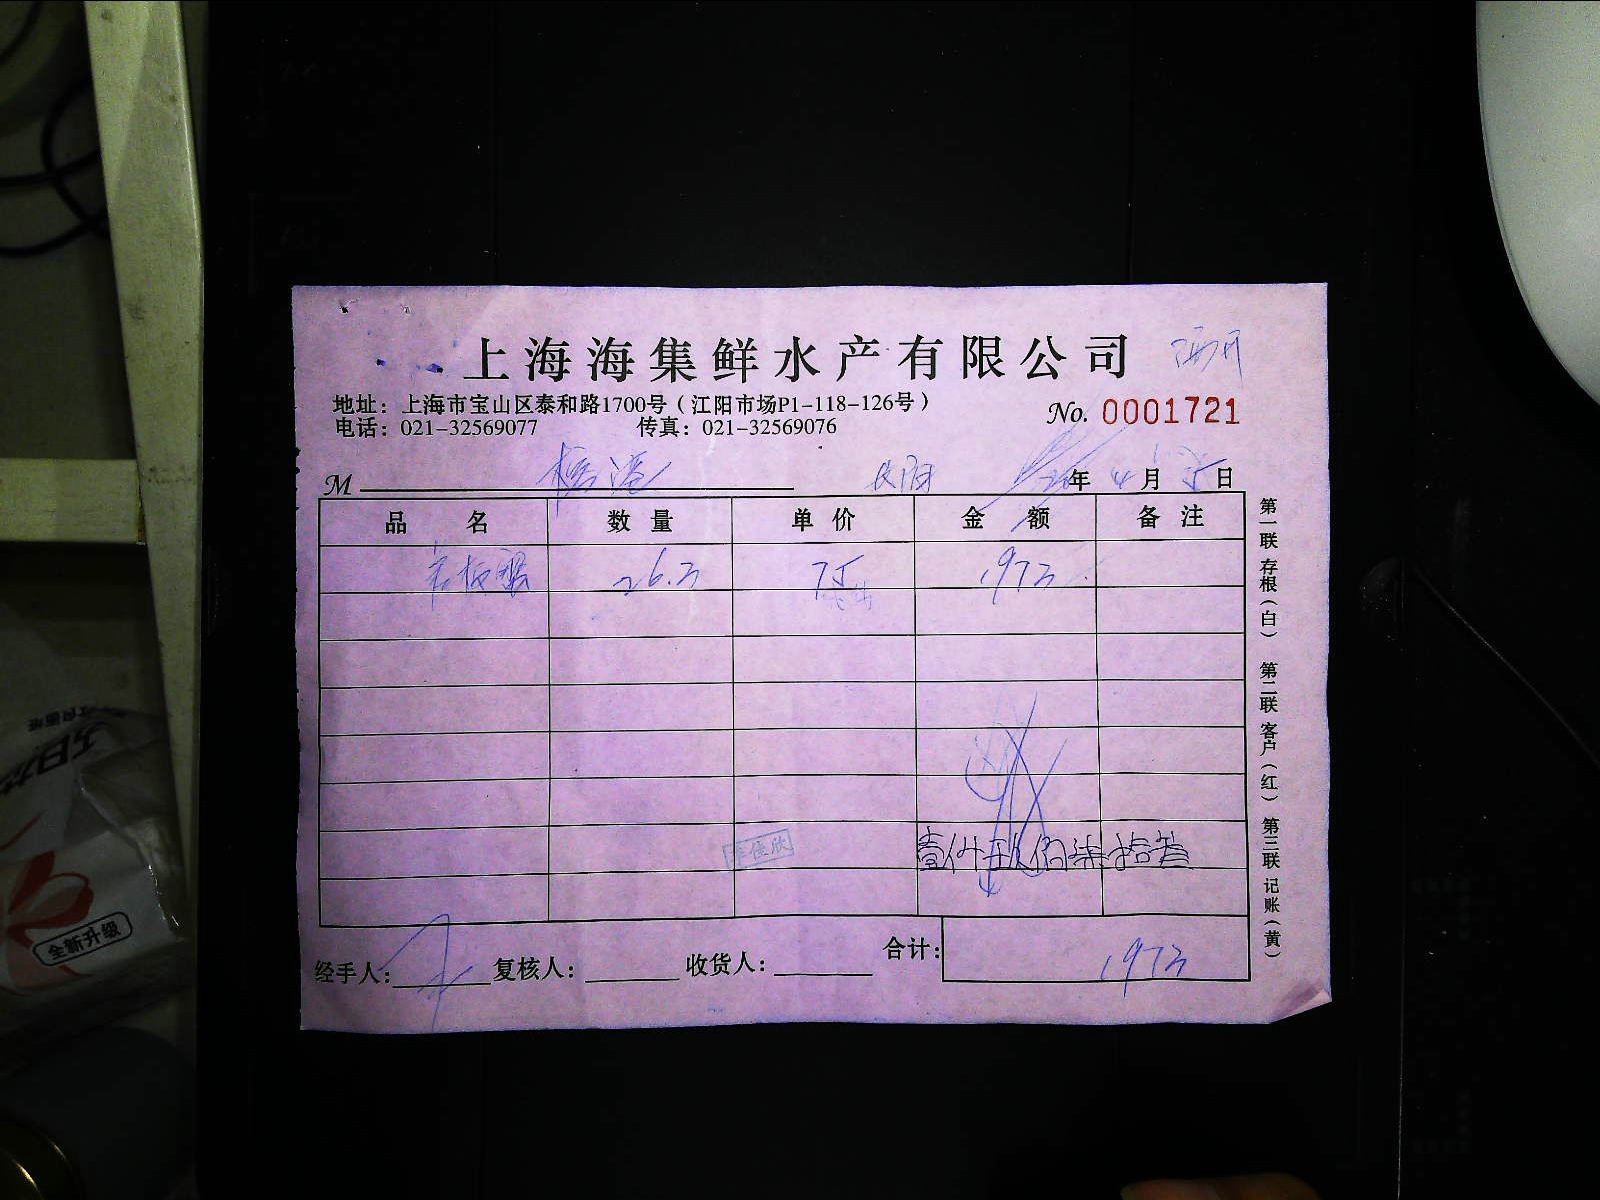 上海海集鲜水产有限公司
地址：上海市宝山区泰和路1700号（江阳市场P1-118-126号）
No. 0001721
电话：021-32569077 传真：021-32569076
M 年 4 月 5 日
品名 数量 单价 金额 备注
26.3 75 1973
壹仟玖佰柒拾叁
合计： 1973
经手人： 复核人： 收货人：
第一联 存根（白） 第二联 客户（红） 第三联 记账（黄）
全新升级